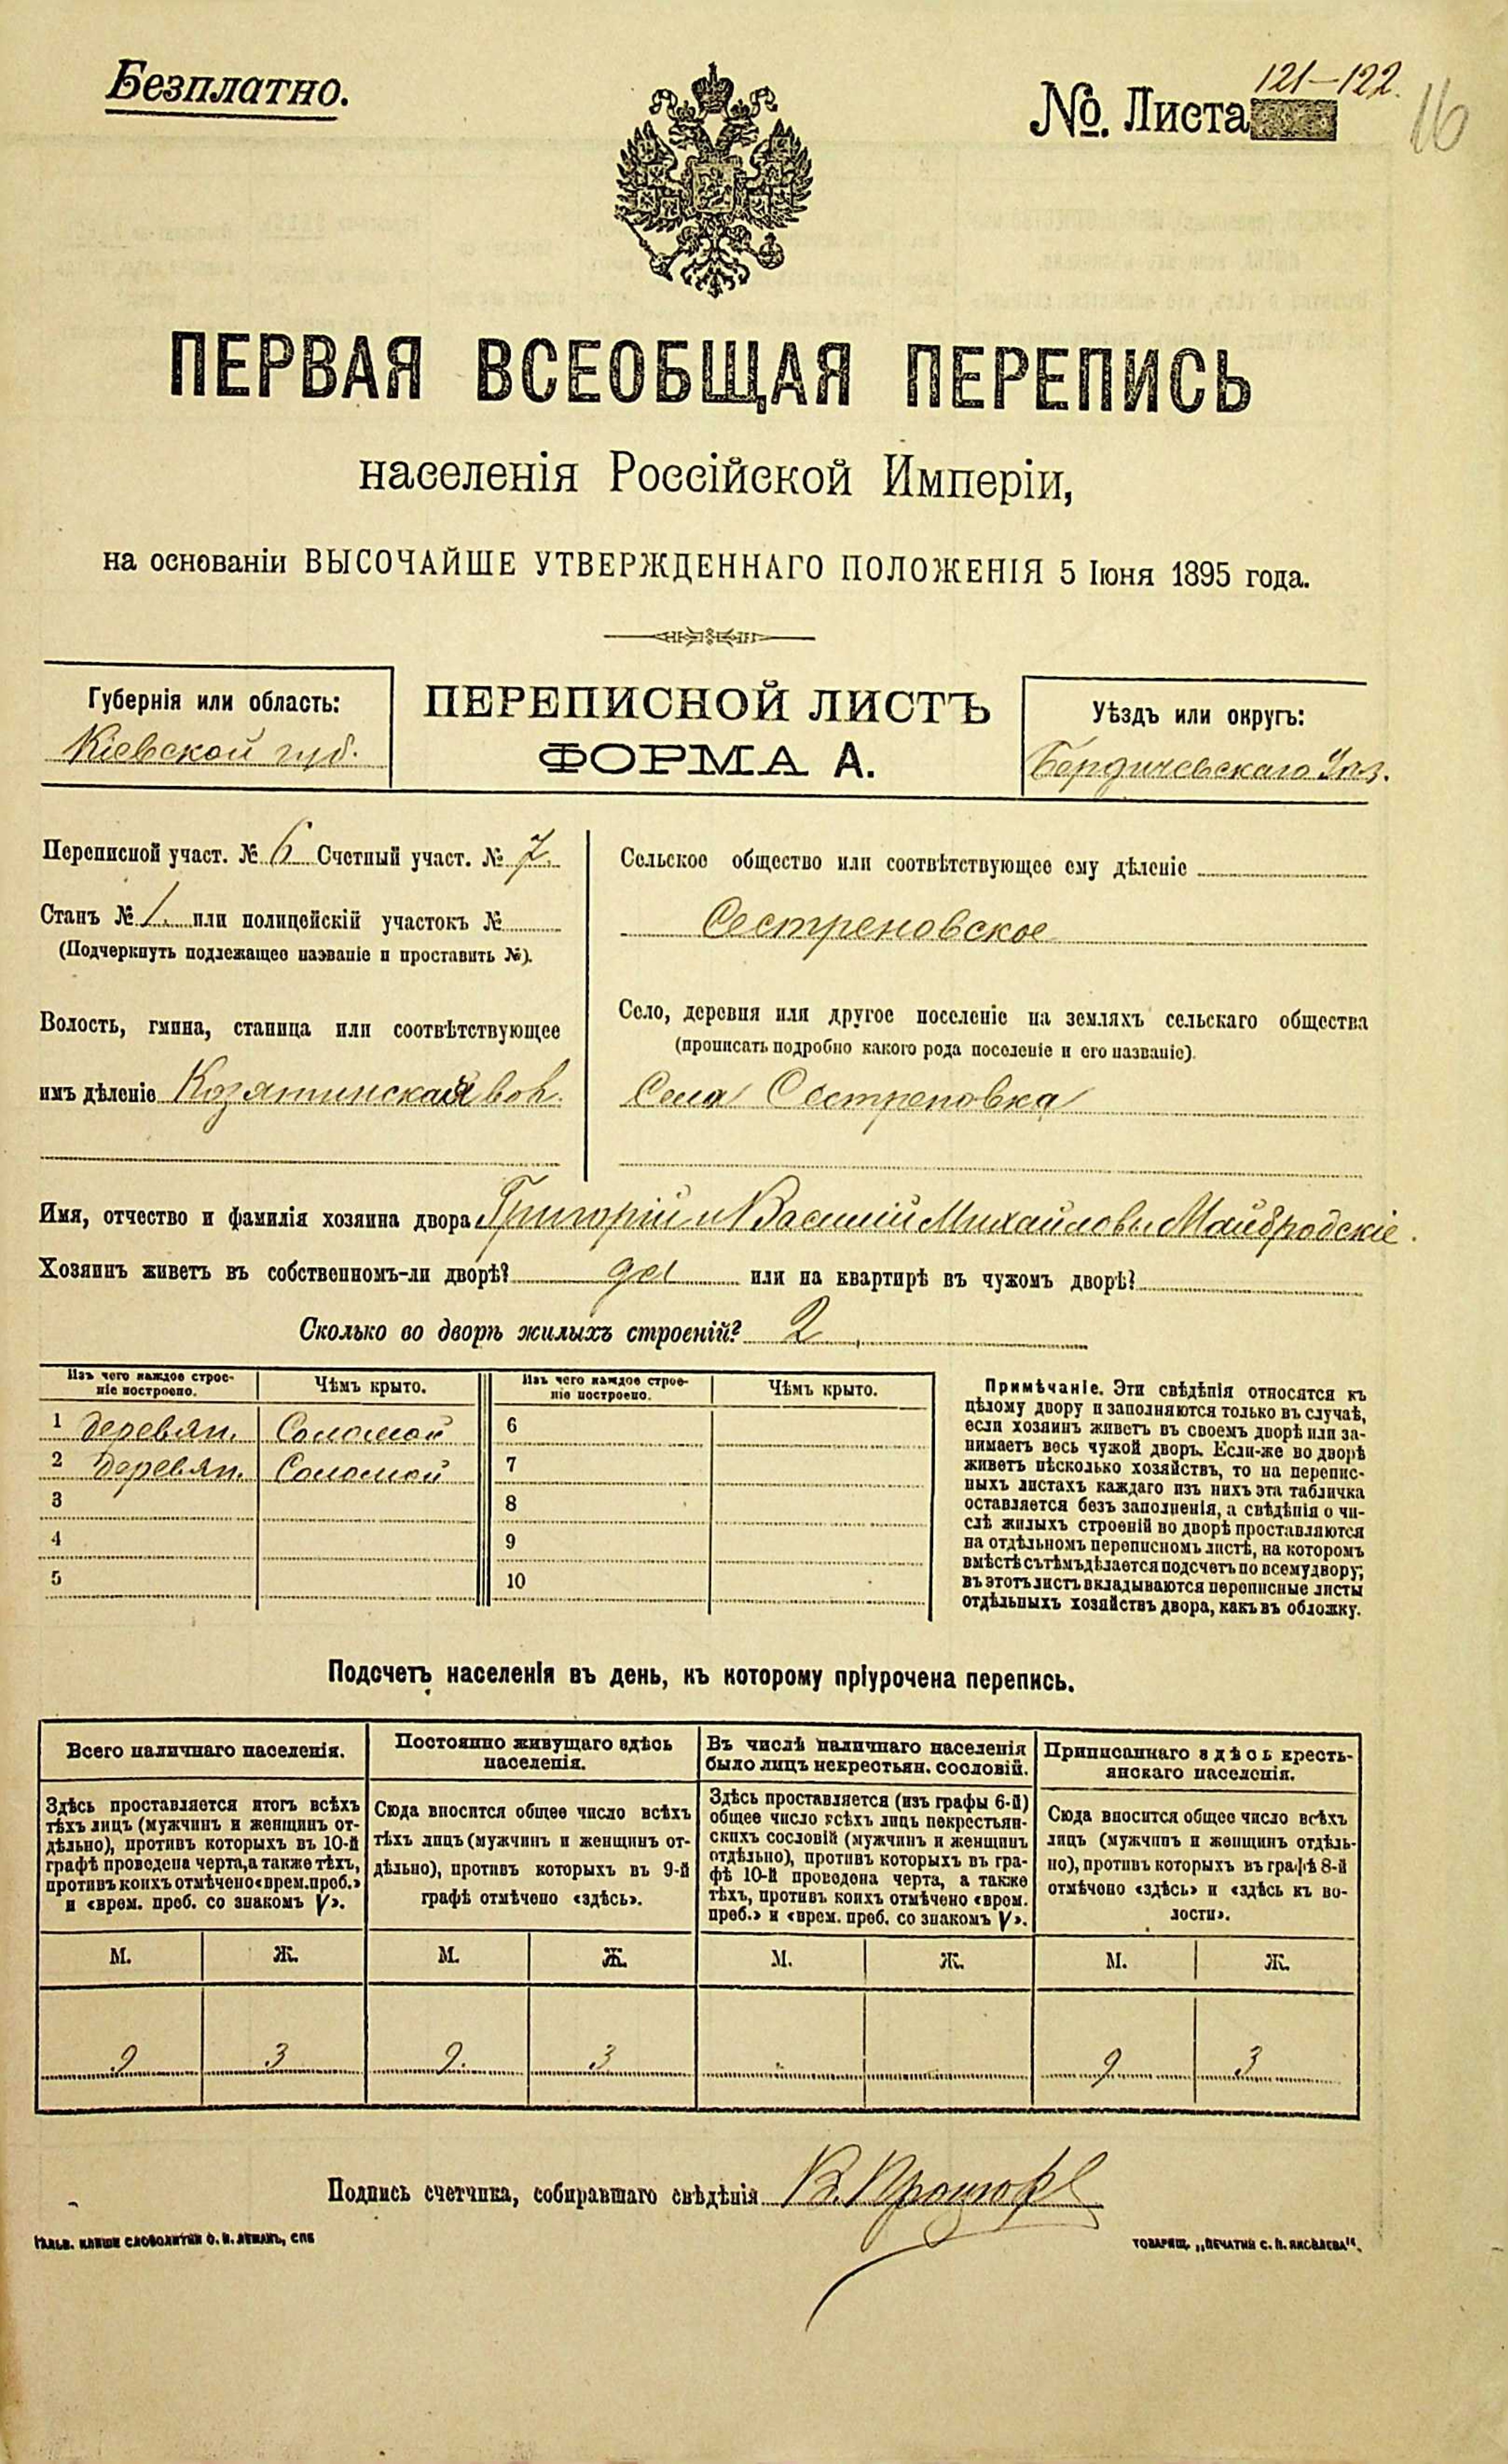 Безплатно.
121–122.
№. Листа
16
ПЕРВАЯ ВСЕОБЩАЯ ПЕРЕПИСЬ
населенія Россійской Имперіи,
на основаніи ВЫСОЧАЙШЕ УТВЕРЖДЕННАГО ПОЛОЖЕНІЯ 5 Іюня 1895 года.
Губернія или область:
Кіевской губ.
ПЕРЕПИСНОЙ ЛИСТЪ
ФОРМА А.
Уѣздъ или округъ:
Бердичевскаго
Переписной участ. № 6 Счетный участ. № 7.
Станъ № 1. или полицейскій участокъ №
(Подчеркнуть подлежащее названіе и проставить №).
Волость, гмина, станица или соотвѣтствующее
имъ дѣленіе Козятинская вол.
Сельское общество или соотвѣтствующее ему дѣленіе
Сестреновское
Село, деревня или другое поселеніе на земляхъ сельскаго общества
(прописать подробно какого рода поселеніе и его названіе).
Села Сестреновка
Имя, отчество и фамилія хозяина двора Григорій и Василій Михайловы Майбродскіе.
Хозяинъ живетъ въ собственномъ-ли дворѣ? да или на квартирѣ въ чужомъ дворѣ?
Сколько во дворѣ жилыхъ строеній? 2
Изъ чего каждое строе-
ніе построено.
Чѣмъ крыто.
Изъ чего каждое строе-
ніе построено.
Чѣмъ крыто.
1 деревян. Соломой 6
2 деревян. Соломой 7
3 8
4 9
5 10
Примѣчаніе. Эти свѣдѣнія относятся къ
цѣлому двору и заполняются только въ случаѣ,
если хозяинъ живетъ въ своемъ дворѣ или за-
нимаетъ весь чужой дворъ. Если-же во дворѣ
живетъ нѣсколько хозяйствъ, то на перепис-
ныхъ листахъ каждаго изъ нихъ эта табличка
оставляется безъ заполненія, а свѣдѣнія о чи-
слѣ жилыхъ строеній во дворѣ проставляются
на отдѣльномъ переписномъ листѣ, на которомъ
вмѣстѣ съ тѣмъ дѣлается подсчетъ по всему двору;
въ этотъ листъ вкладываются переписные листы
отдѣльныхъ хозяйствъ двора, какъ въ обложку.
Подсчетъ населенія въ день, къ которому пріурочена перепись.
Всего наличнаго населенія.
Здѣсь проставляется итогъ всѣхъ
тѣхъ лицъ (мужчинъ и женщинъ от-
дѣльно), противъ которыхъ въ 10-й
графѣ проведена черта, а также тѣхъ,
противъ коихъ отмѣчено «врем. преб.»
и «врем. преб. со знакомъ V».
Постоянно живущаго здѣсь
населенія.
Сюда вносится общее число всѣхъ
тѣхъ лицъ (мужчинъ и женщинъ от-
дѣльно), противъ которыхъ въ 9-й
графѣ отмѣчено «здѣсь».
Въ числѣ наличнаго населенія
было лицъ некрестьян. сословій.
Здѣсь проставляется (изъ графы 6-й)
общее число всѣхъ лицъ некрестьян-
скихъ сословій (мужчинъ и женщинъ
отдѣльно), противъ которыхъ въ гра-
фѣ 10-й проведена черта, а также
тѣхъ, противъ коихъ отмѣчено «врем.
преб.» и «врем. преб. со знакомъ V».
Приписаннаго здѣсь кресть-
янскаго населенія.
Сюда вносится общее число всѣхъ
лицъ (мужчинъ и женщинъ отдѣль-
но), противъ которыхъ въ графѣ 8-й
отмѣчено «здѣсь» и «здѣсь къ во-
лости».
М. Ж. М. Ж. М. Ж. М. Ж.
2 3 2. 3 2 3
Подпись счетчика, собиравшаго свѣдѣнія
ГАЛЬВ. КЛИШЕ СЛОВОЛИТНИ О. И. ЛЕМАНЪ, СПБ
ТОВАРИЩ. „ПЕЧАТНЯ С. П. ЯКОВЛЕВА".